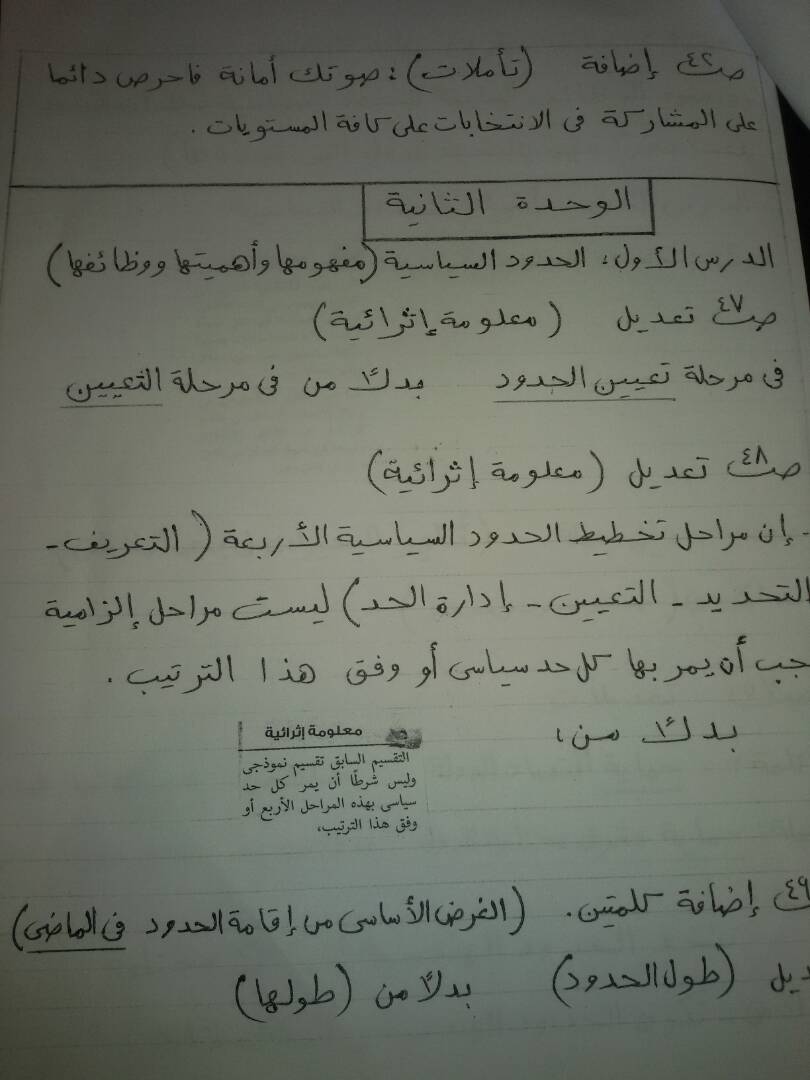 ص٤٢ إضافة (تأملات): صوتك أمانة فاحرص دائما
على المشاركة فى الانتخابات على كافة المستويات.
الوحدة الثانية
الدرس الأول: الحدود السياسية (مفهومها وأهميتها ووظائفها)
ص٤٧ تعديل (معلومة إثرائية)
فى مرحلة تعيين الحدود بدلًا من فى مرحلة التعيين
ص٤٨ تعديل (معلومة إثرائية)
- إن مراحل تخطيط الحدود السياسية الأربعة (التعريف -
التحديد - التعيين - إدارة الحد) ليست مراحل إلزامية
جب أن يمر بها كل حد سياسى أو وفق هذا الترتيب.
بدلًا من:
معلومة إثرائية
التقسيم السابق تقسيم نموذجى
وليس شرطًا أن يمر كل حد
سياسى بهذه المراحل الأربع أو
وفق هذا الترتيب،
٤٩ إضافة كلمتين. (الغرض الأساسى من إقامة الحدود فى الماضى)
ديل (طول الحدود) بدلًا من (طولها)